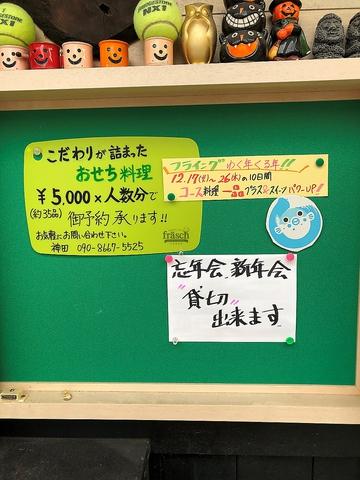 BRIDGESTONE
NX1
BRIDGESTONE
NX1
こだわりが詰まった
おせち料理
¥5,000×人数分で
(約35品)御予約承ります!!
お気軽にお問い合わせ下さい。
神田 090-8667-5525
fräsch
フライングゆく年くる年!!
12.17(火)〜26(木)の10日間
コース料理一品プラス&スイーツパワーUP!!
忘年会、新年会
"貸切"
出来ます